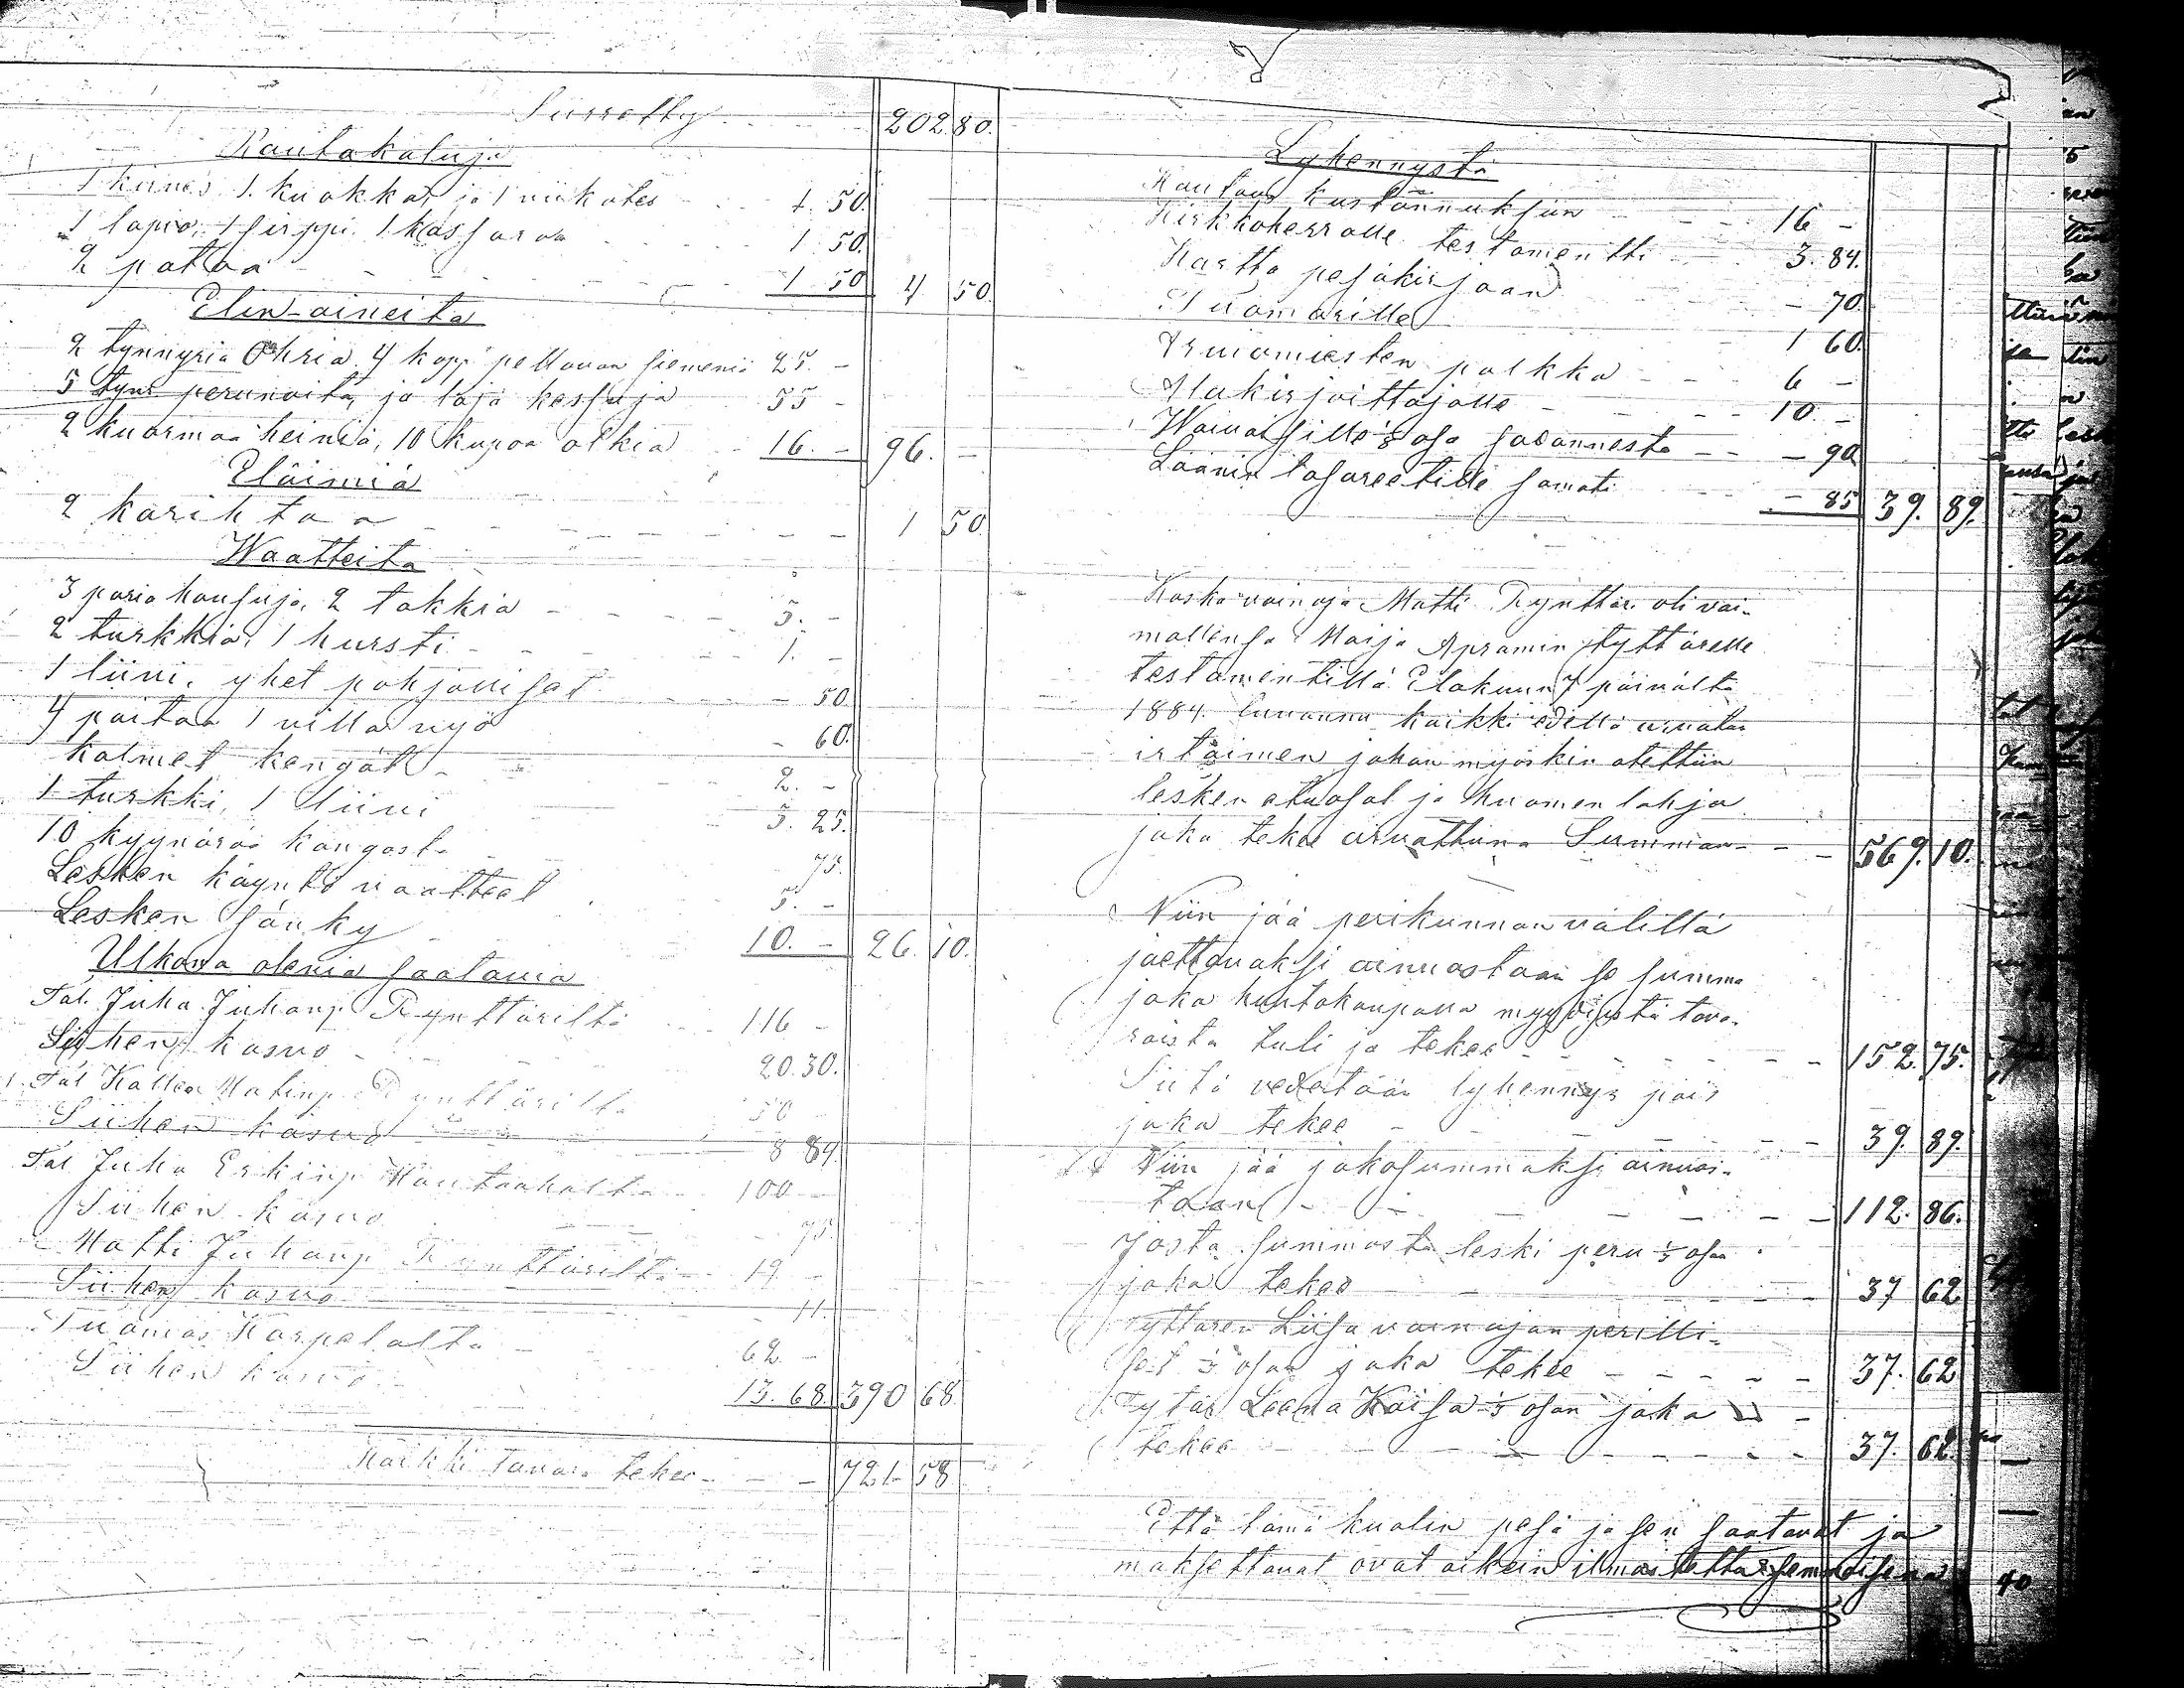 Siirretty 202 80.
Rautakaluja
1 kirves 1. kuokka ja 1 viikate 1. 50.
1 lapio, 1 sirppi. 1 kassara 1 50.
2 pataa 1 50 4 50.
Elin-aineita
2 tynnyriä Ohria, 4 kapp pellavan siemeniä 25. -
5 tyn: perunoita, ja läjä kessuja 55 -
2 kuormaa heiniä, 10 kupoa olkia 16. - 96. -
Eläimiä
2 karihtaa 1 50.
Waatteita
3 paria housuja, 2 takkia 5. -
2 turkkia, 1 hursti 1. -
1 liivi, yhet pohjalliset - 50.
4 paitaa 1 villa vyö - 60.
kolmet kengät 2. -
1 turkki, 1 liivi 3. 25.
10 kyynärää kangasta 75.
Lesken käynti vaatteet 5. -
Lesken sänky 10. - 26. 10.
Ulkona olevia saatavia
Tal. Juha Juhanp. Rynttäriltä 116 -
Siihen kasvo 20. 30.
Tal Kallea Matinp Rynttäriltä 50
Siihen kasvo 8 84.
Tal Juha Erkinp. 100 -
Siihen kasvo - 75.
Matti Juhanp. Rynttäriltä 19 -
Siihen kasvo - 11.
Tuomas Karpelalta 62. -
Siihen kasvo 13. 68. 390 68.
Kaikki tavara tekee - - 721- 58
Lyhennystä
Hautaus kustannuksiin 16 -
Kirkkoherralle testamentti 3. 84.
Kartta pesäkirjaan - 70.
Tuomarille 1 60.
Arviomiesten palkka 6 -
Allekirjoittajalle 10. -
Waivaisille 1/8 osa sadannesta - 90.
Läänin lasareetille samati - 85 39. 89.
Koska vainaja Matti Rynttäri oli vai-
mollensa Maija Apramin tyttärelle
testamentillä Elokuun 7 päivältä
1884. luvannu kaikki edellä arvatun
irtaimen johon myöskin otettiin
lesken etuosat ja huomen lahja
joka tekee arvattuna Summan - - 569. 10.
Niin jää perikunnan välillä
jaettavaksi ainuostaan se summa
joka huutokaupalla myydyistä tava-
roista tuli ja tekee - - 152. 75.
Siitä vedetään lyhennys pois
joka tekee - 39. 89.
Niin jää jakosummaksi ainuos-
taan - - 112. 86.
Josta summasta leski perii 1/3 osan
joka tekee 37 62
Tyttären Liisa vainajan perilli-
set 1/3 osan joka tekee - - 37. 62
Tytär Leena Kaisa 1/3 osan joka
tekee - - 37. 62.
Että tämä kuolin pesä ja sen saatavat ja
maksettavat ovat oikein ilmoitettu semmoisena
40